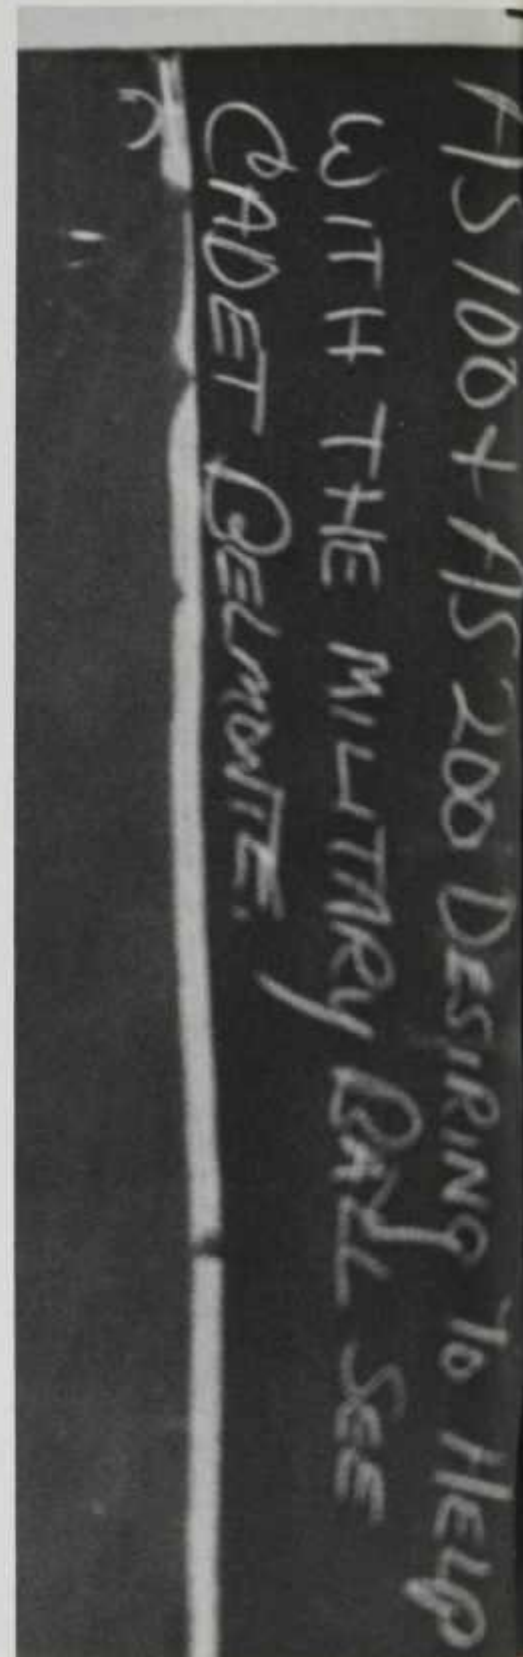 AS 100 + AS 200 DESIRING TO HELP
WITH THE MILITARY BALL SEE
CADET BELMONTE.